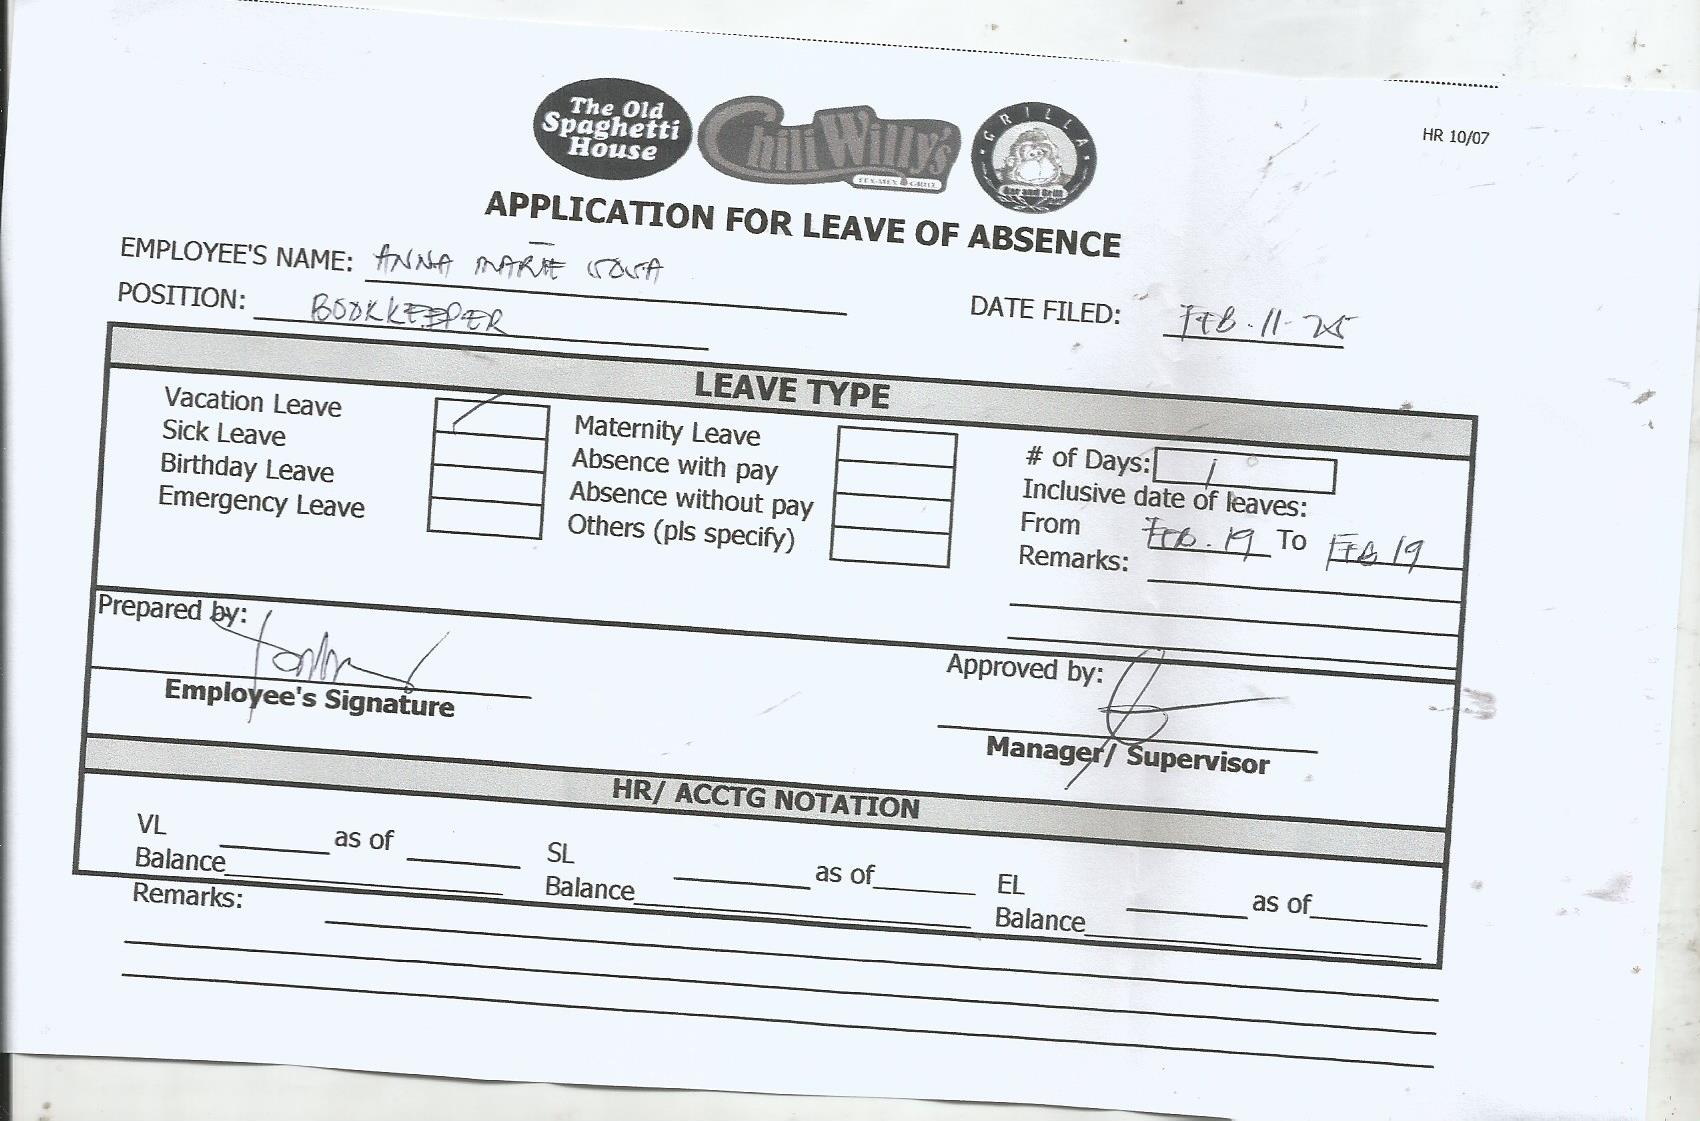 The Old
Spaghetti
House
Chili Willy's
TEX-MEX GRILL
GRILLA
Bar and Grill
HR 10/07
APPLICATION FOR LEAVE OF ABSENCE
EMPLOYEE'S NAME: ANNA MARIE
POSITION: BOOKKEEPER
DATE FILED: FEB. 11-25
LEAVE TYPE
Vacation Leave /
Sick Leave
Birthday Leave
Emergency Leave
Maternity Leave
Absence with pay
Absence without pay
Others (pls specify)
# of Days: 1
Inclusive date of leaves:
From FEB. 19 To FEB 19
Remarks:
Prepared by:
Employee's Signature
Approved by:
Manager/ Supervisor
HR/ ACCTG NOTATION
VL as of
Balance
SL as of
Balance
EL as of
Balance
Remarks: